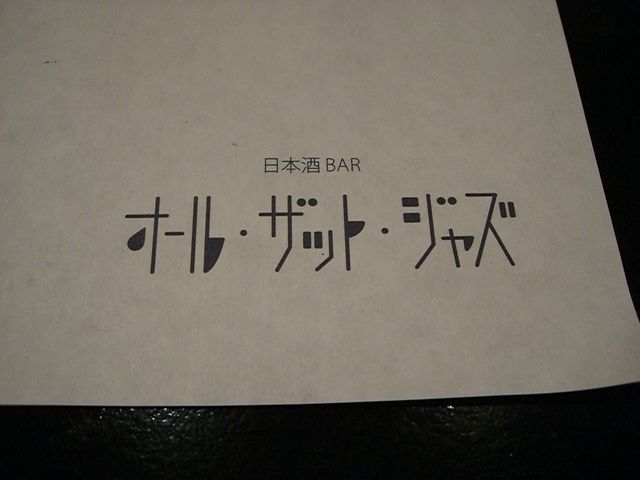 日本酒 BAR
オール・ザット・ジャズ